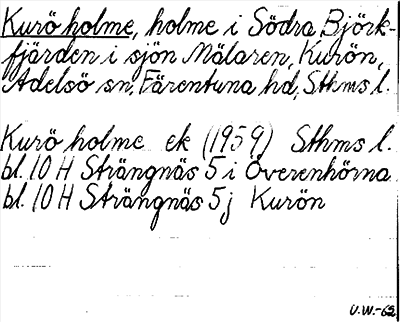 Kurö holme, holme i Södra Björk-
fjärden i sjön Mälaren, Kurön,
Adelsö sn, Färentuna hd, Sthms l.
Kurö holme ek (1959) Sthms l.
bl. 10 H Strängnäs 5 i Överenhörna
bl. 10 H Strängnäs 5 j Kurön
U.W.-62